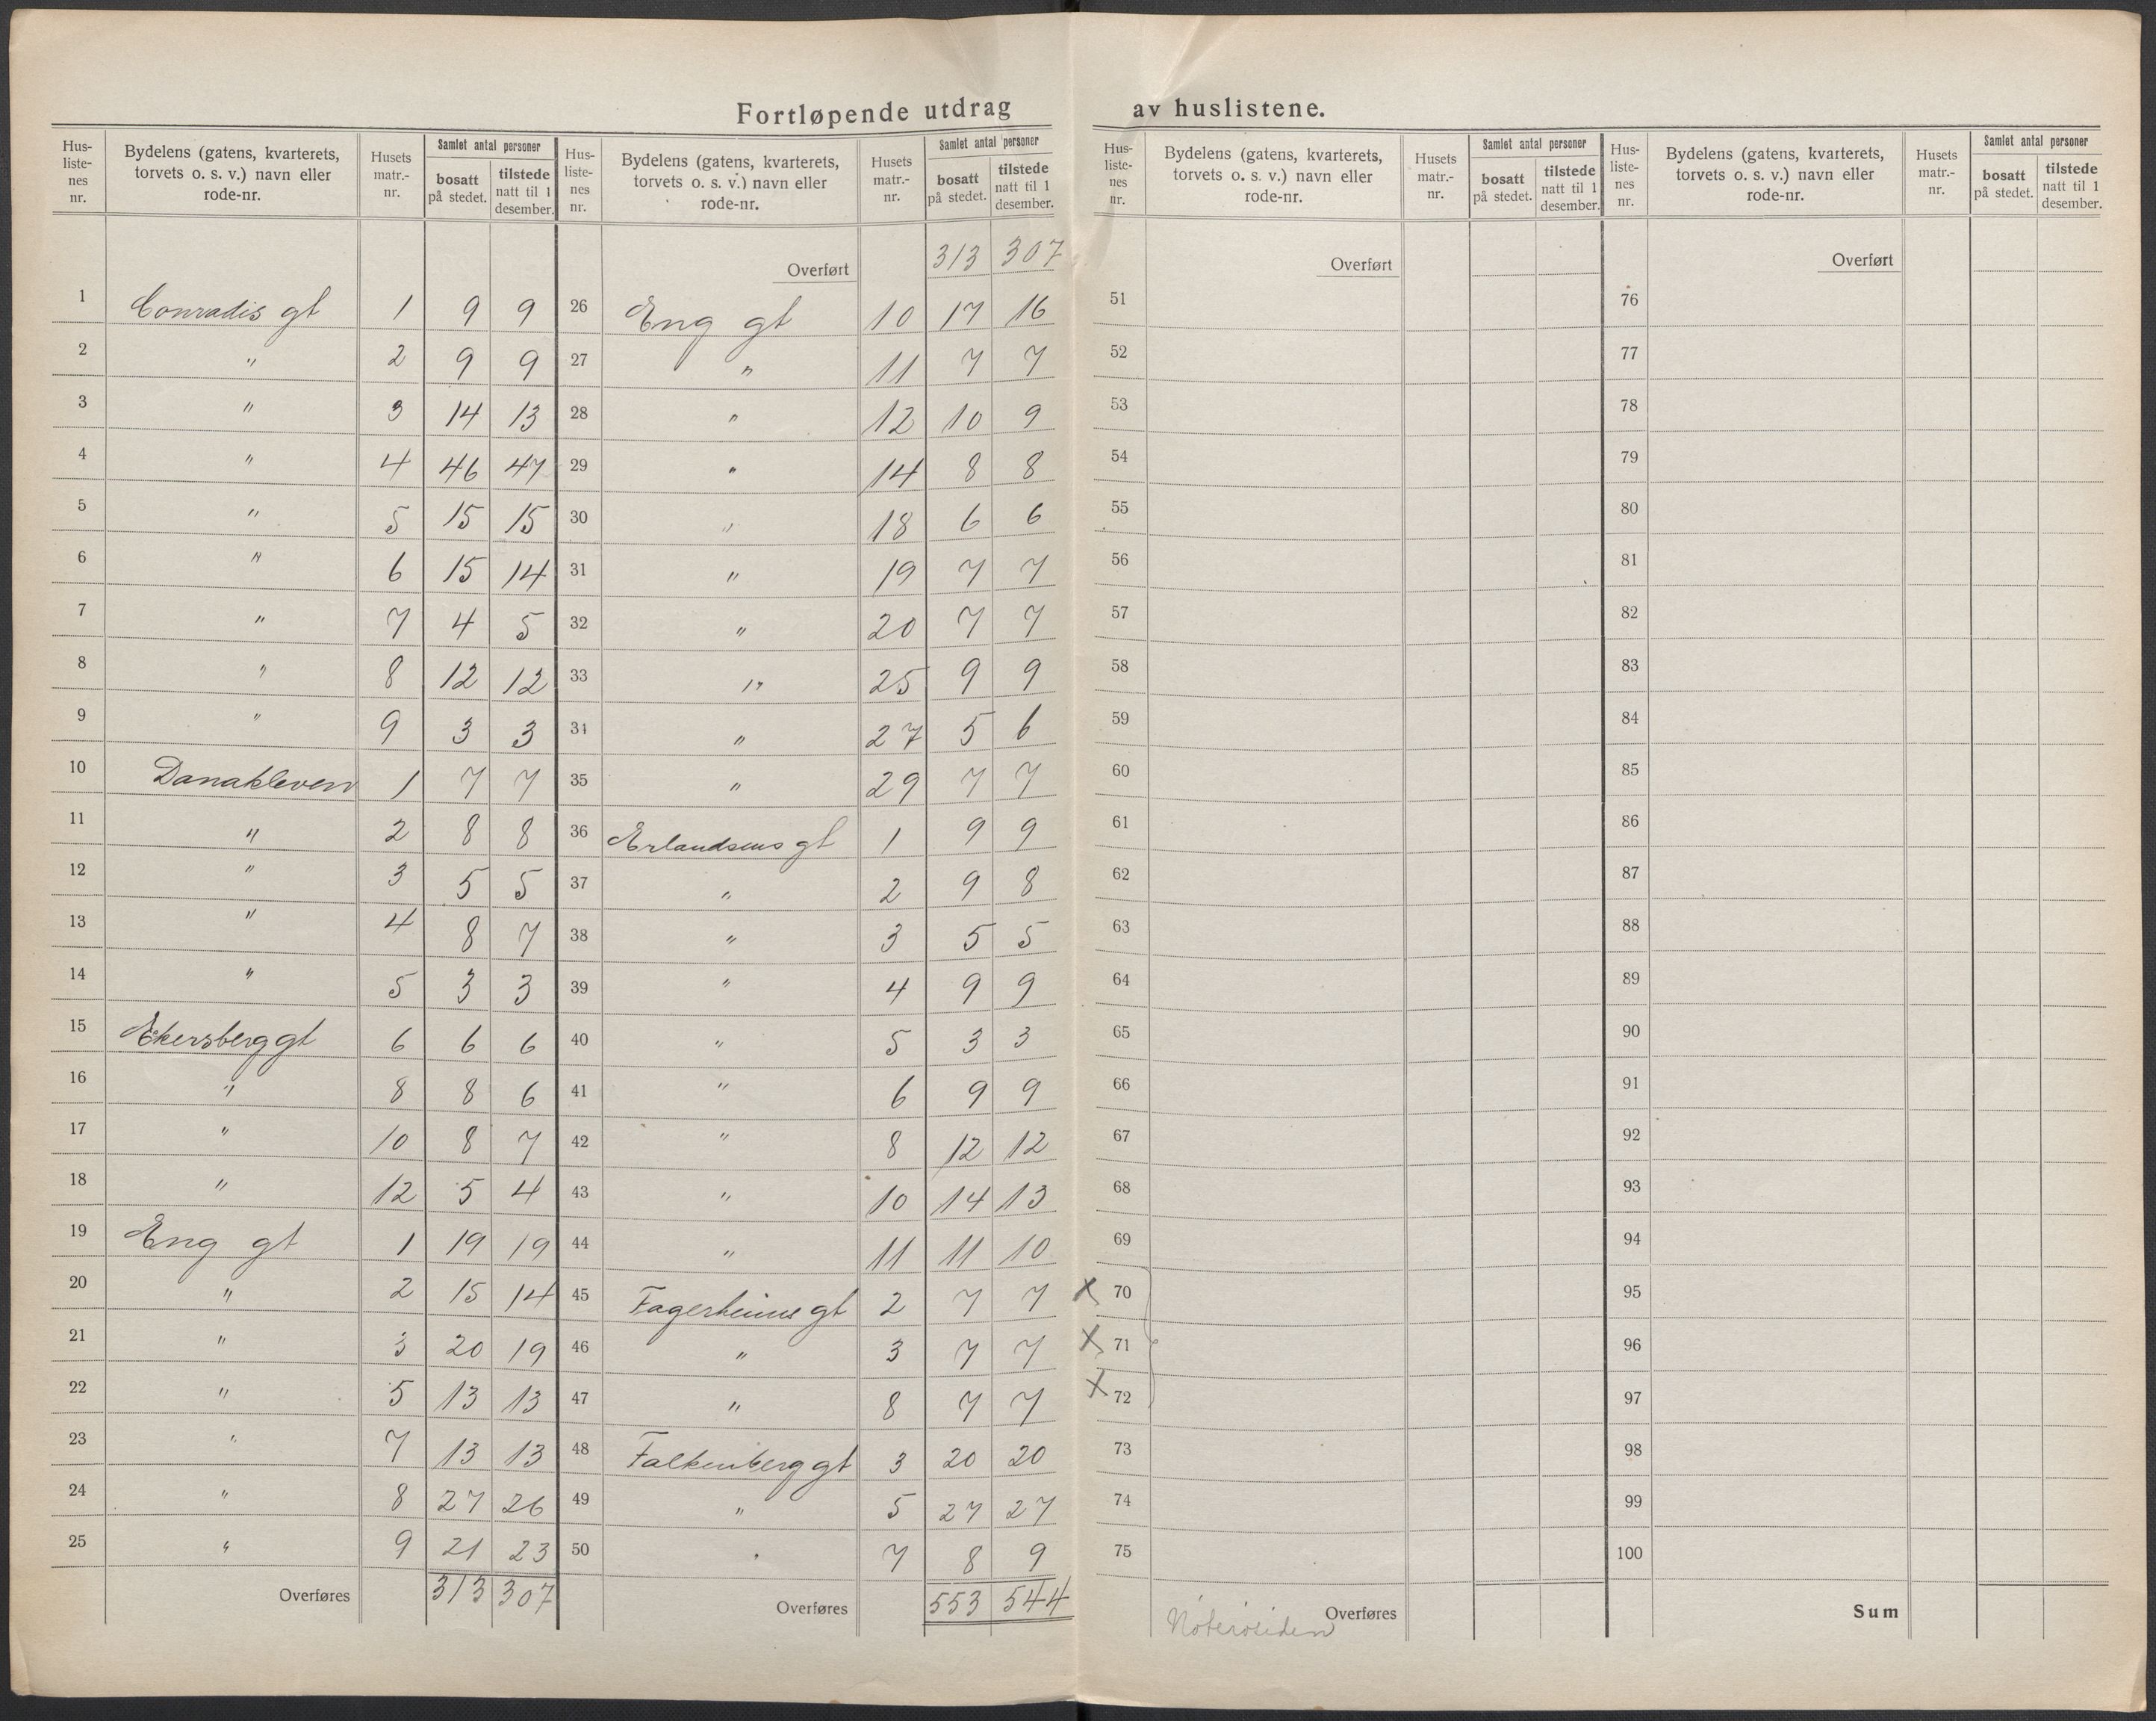 Fortløpende utdrag av huslistene.
Hus-listenes nr. | Bydelens (gatens, kvarterets, torvets o. s. v.) navn eller rode-nr. | Husets matr.-nr. | Samlet antal personer bosatt på stedet. | Samlet antal personer tilstede natt til 1 desember.
1 Conradis gt 1 9 9
2 " 2 9 9
3 " 3 14 13
4 " 4 46 47
5 " 5 15 15
6 " 6 15 14
7 " 7 4 5
8 " 8 12 12
9 " 9 3 3
10 Danakleven 1 7 7
11 " 2 8 8
12 " 3 5 5
13 " 4 8 7
14 " 5 3 3
15 Ekersberg gt 6 6 6
16 " 8 8 6
17 " 10 8 7
18 " 12 5 4
19 Eng gt 1 19 19
20 " 2 15 14
21 " 3 20 19
22 " 5 13 13
23 " 7 13 13
24 " 8 27 26
25 " 9 21 23
Overføres 313 307
Hus-listenes nr. | Bydelens (gatens, kvarterets, torvets o. s. v.) navn eller rode-nr. | Husets matr.-nr. | Samlet antal personer bosatt på stedet. | Samlet antal personer tilstede natt til 1 desember.
Overført 313 307
26 Eng gt 10 17 16
27 " 11 7 7
28 " 12 10 9
29 " 14 8 8
30 " 18 6 6
31 " 19 7 7
32 " 20 7 7
33 " 25 9 9
34 " 27 5 6
35 " 29 7 7
36 Erlandsens gt 1 9 9
37 " 2 9 8
38 " 3 5 5
39 " 4 9 9
40 " 5 3 3
41 " 6 9 9
42 " 8 12 12
43 " 10 14 13
44 " 11 11 10
45 Fagerheims gt 2 7 7
46 " 3 7 7
47 " 8 7 7
48 Falkenberg gt 3 20 20
49 " 5 27 27
50 " 7 8 9
Overføres 553 544
Hus-listenes nr. | Bydelens (gatens, kvarterets, torvets o. s. v.) navn eller rode-nr. | Husets matr.-nr. | Samlet antal personer bosatt på stedet. | Samlet antal personer tilstede natt til 1 desember.
Overført
51
52
53
54
55
56
57
58
59
60
61
62
63
64
65
66
67
68
69
X 70
X 71
X 72
73
74
75
Nøterøsiden Overføres
Hus-listenes nr. | Bydelens (gatens, kvarterets, torvets o. s. v.) navn eller rode-nr. | Husets matr.-nr. | Samlet antal personer bosatt på stedet. | Samlet antal personer tilstede natt til 1 desember.
Overført
76
77
78
79
80
81
82
83
84
85
86
87
88
89
90
91
92
93
94
95
96
97
98
99
100
Sum